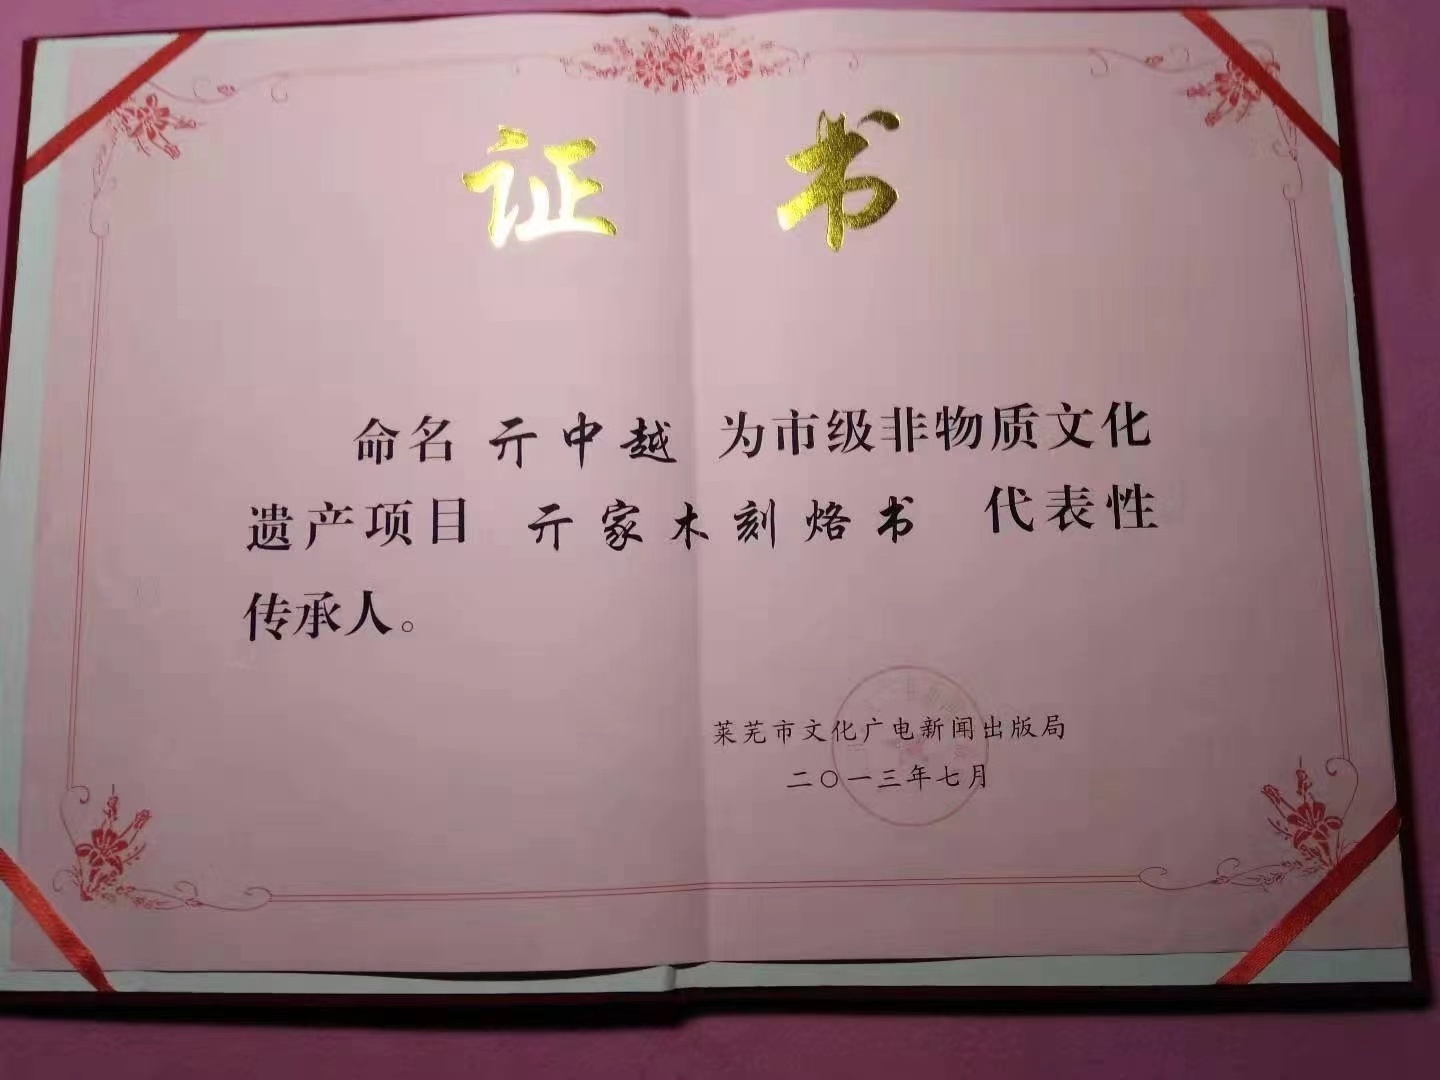 证书
命名 亓中越 为市级非物质文化
遗产项目 亓家木刻烙书 代表性
传承人。
莱芜市文化广电新闻出版局
二〇一三年七月